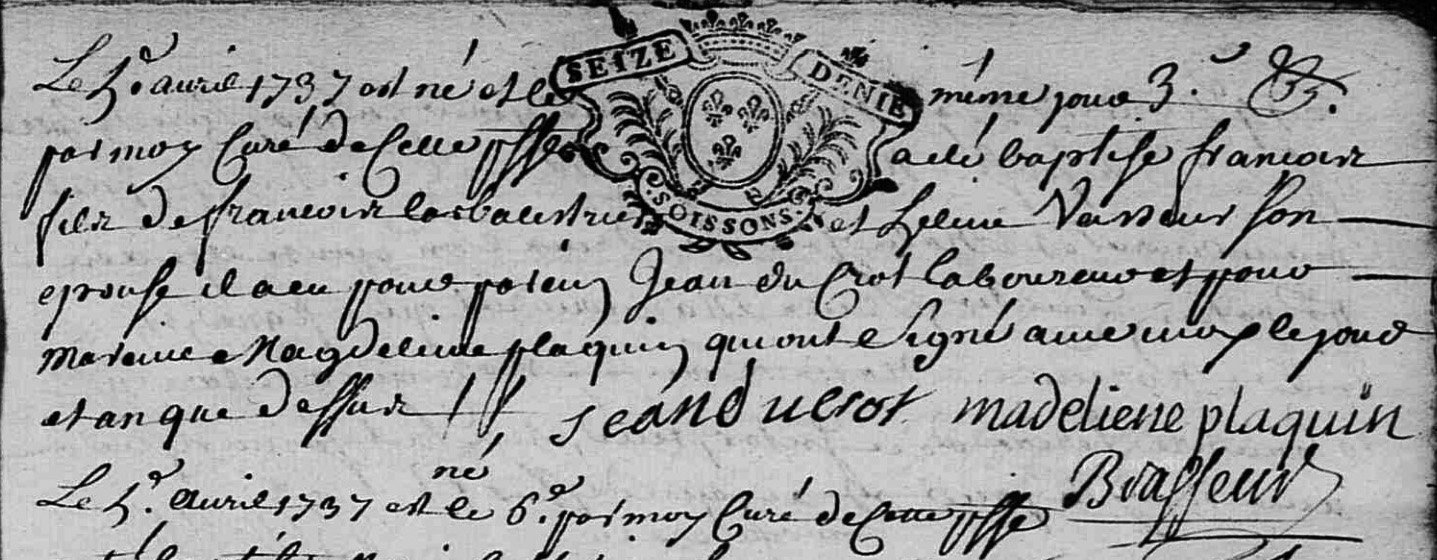 SEIZE DENIE
SOISSONS
Le 5.e avril 1737 est né et le même jour
par moy Curé de Cette psse a eté baptisé francois
fils de francois larbalestrier et helene Vasseur son
epouse il a eu pour parein Jean du Crot laboureur et pour
mareine Magdeleine plaquin qui ont signé avec moy le jour
et an que dessus
jeanducrot madeliene plaquin
Brasseur
né
Le 5.e avril 1737 est le 6.e par moy Curé de Cette psse